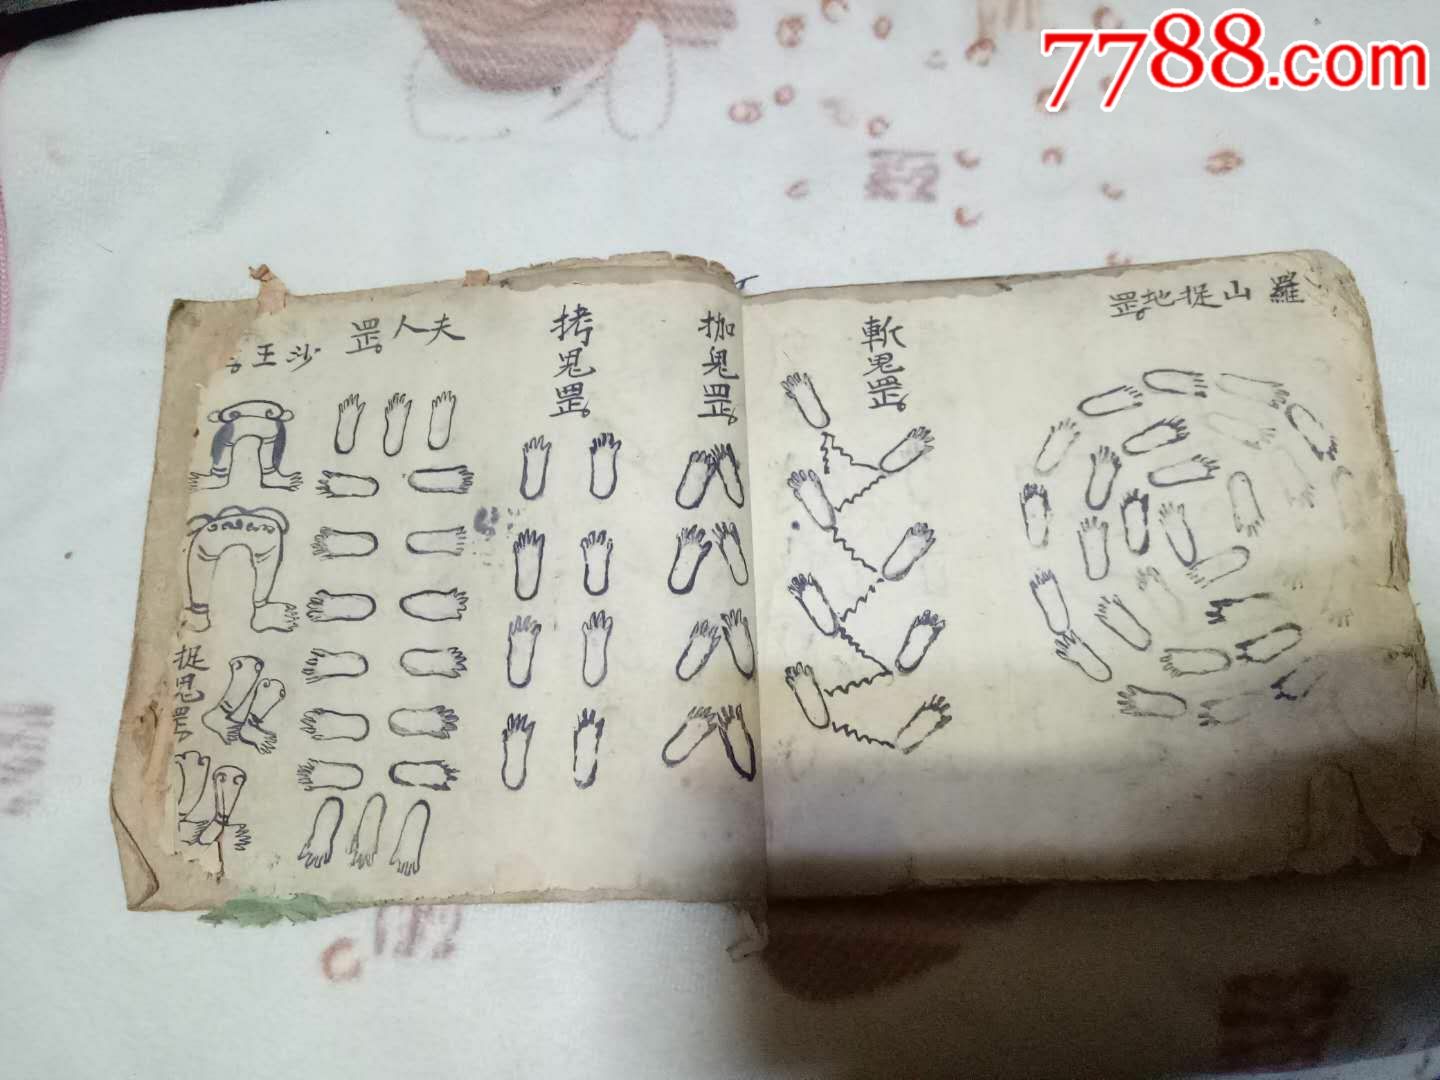 7788.com
羅山捉地罡。
斬鬼罡。
拁鬼罡。
拷鬼罡。
夫人罡。
沙王
捉鬼罡。